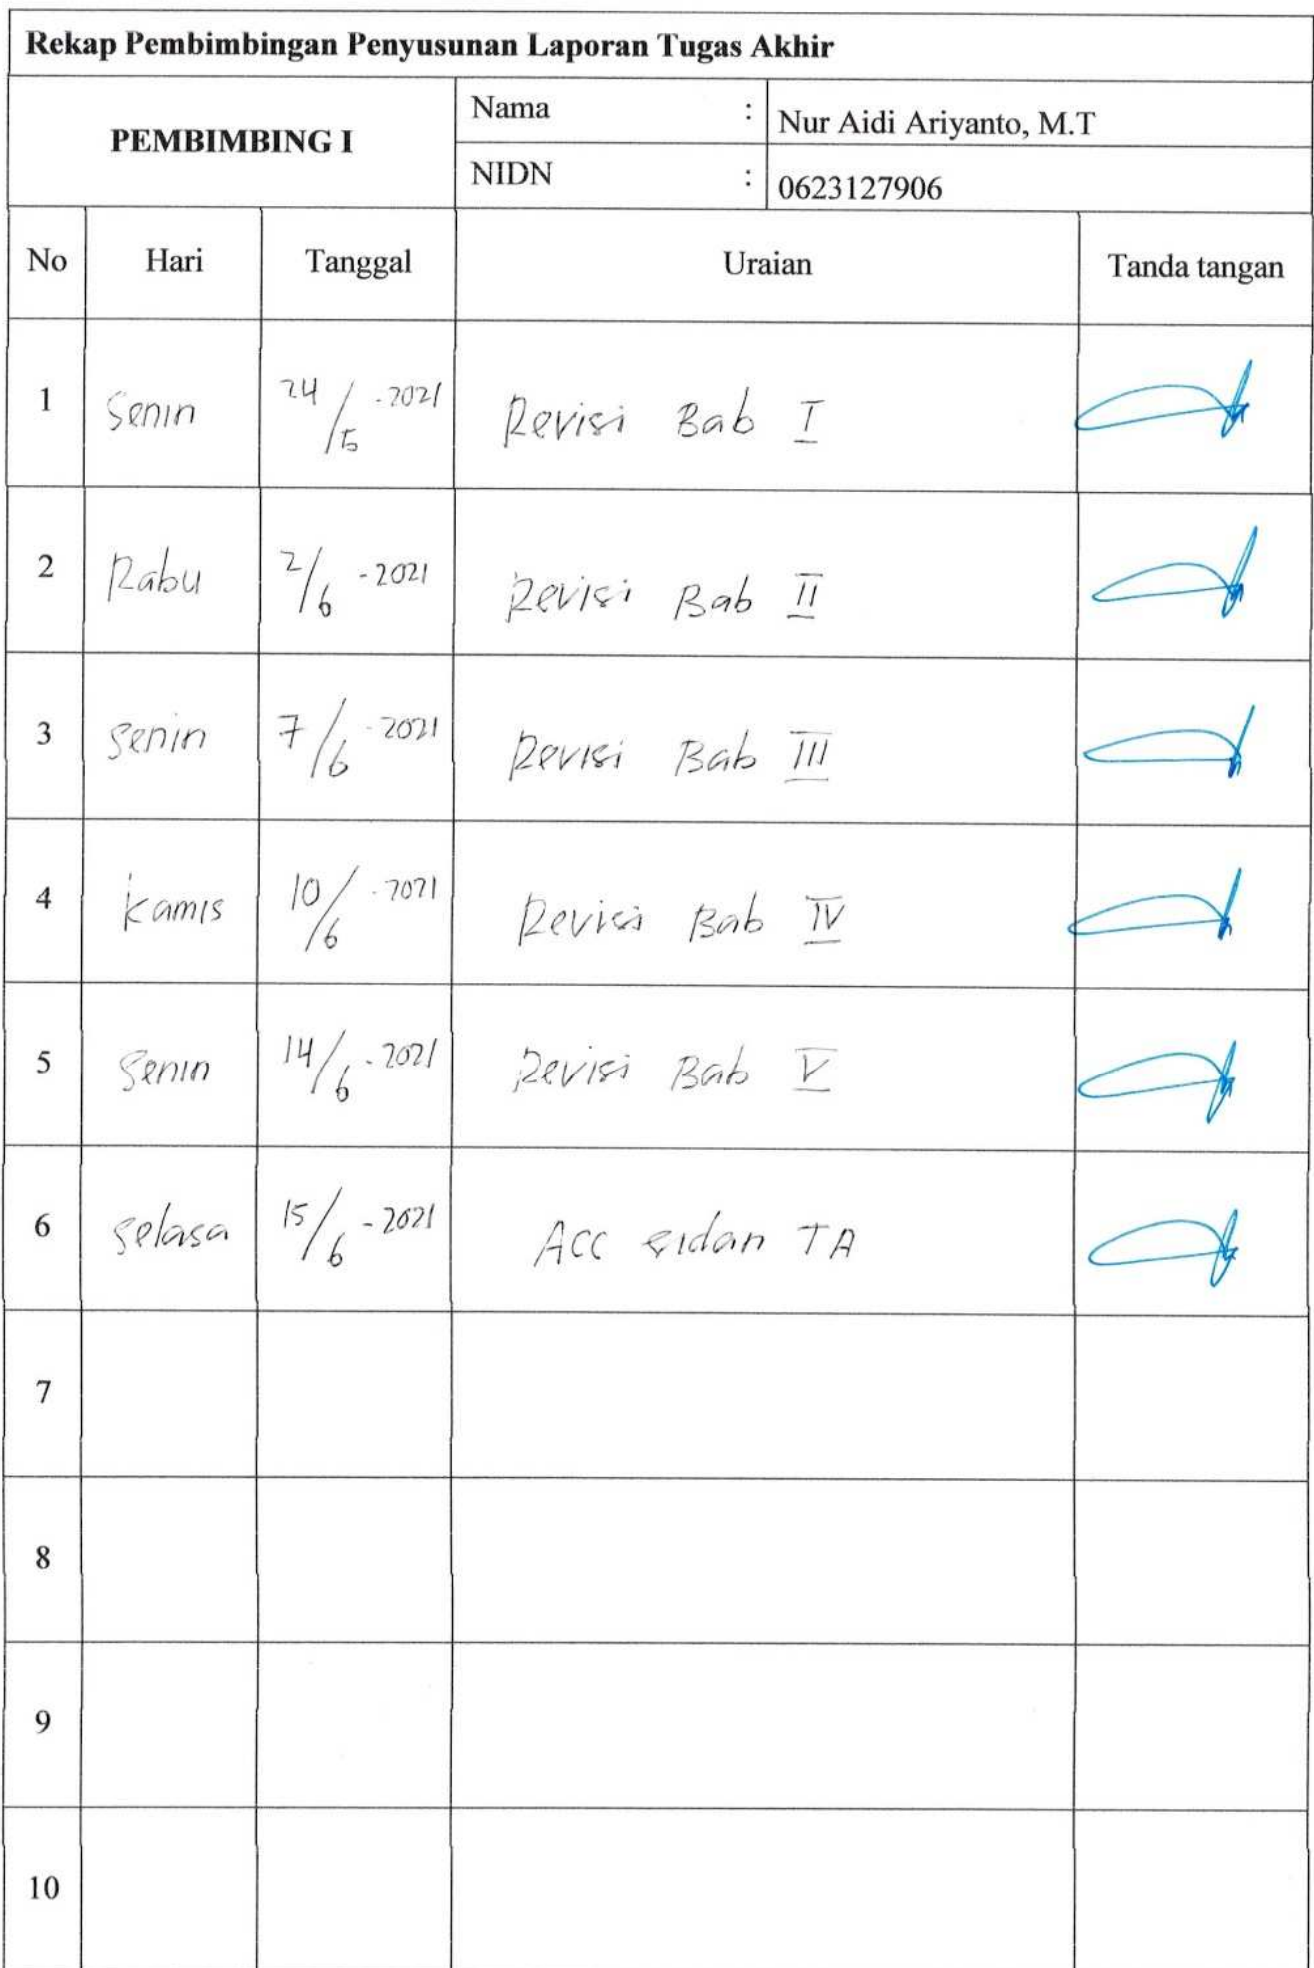 Rekap Pembimbingan Penyusunan Laporan Tugas Akhir
PEMBIMBING I
Nama : Nur Aidi Ariyanto, M.T
NIDN : 0623127906
No Hari Tanggal Uraian Tanda tangan
1 Senin 24/5 - 2021 Revisi Bab I
2 Rabu 2/6 - 2021 Revisi Bab II
3 Senin 7/6 - 2021 Revisi Bab III
4 Kamis 10/6 - 2021 Revisi Bab IV
5 Senin 14/6 - 2021 Revisi Bab V
6 Selasa 15/6 - 2021 ACC sidan TA
7
8
9
10